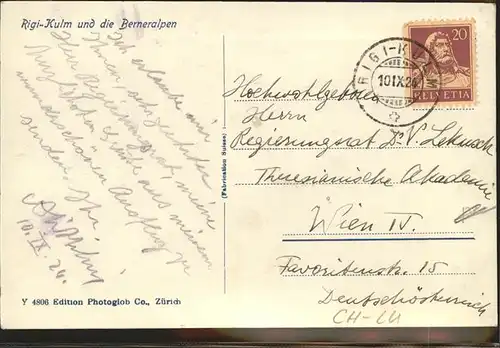 Rigi-Kulm und die Berneralpen
Ich erlaube mir
Ihnen, sehr
Herr Regierungsrat, meine
aus meinem
wunderschönen Ausflug zu
senden. Ihr
10.IX.26.
Y 4806 Edition Photoglob Co., Zürich
(Fabrication Suisse)
RIGI-KULM
10IX.26
20
HELVETIA
Hochwohlgeboren
Herrn
Regierungsrat Dr V.
Theresianische Akademie
Wien IV.
Favoritenstr. 15
Deutschösterreich
CH-LU